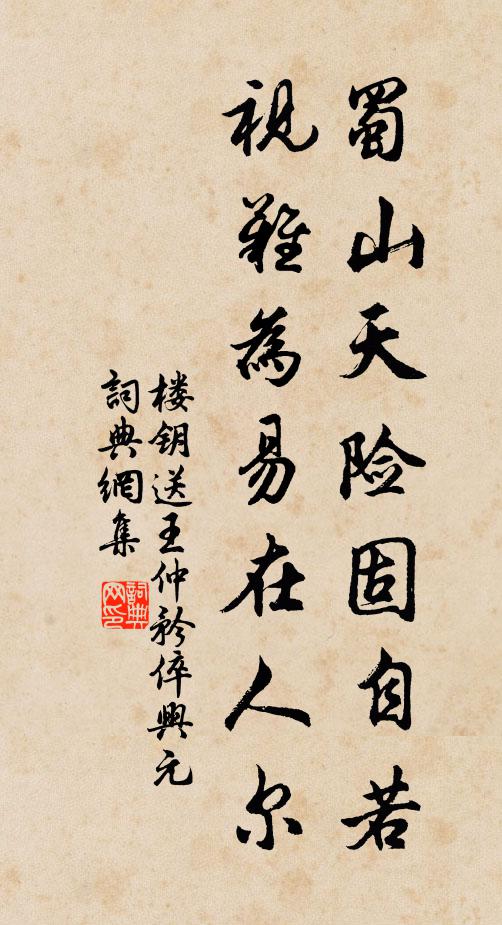 蜀山天险固自若
视難為易在人尔
楼钥送王仲矜倅興元
詞典網集
詞典网印